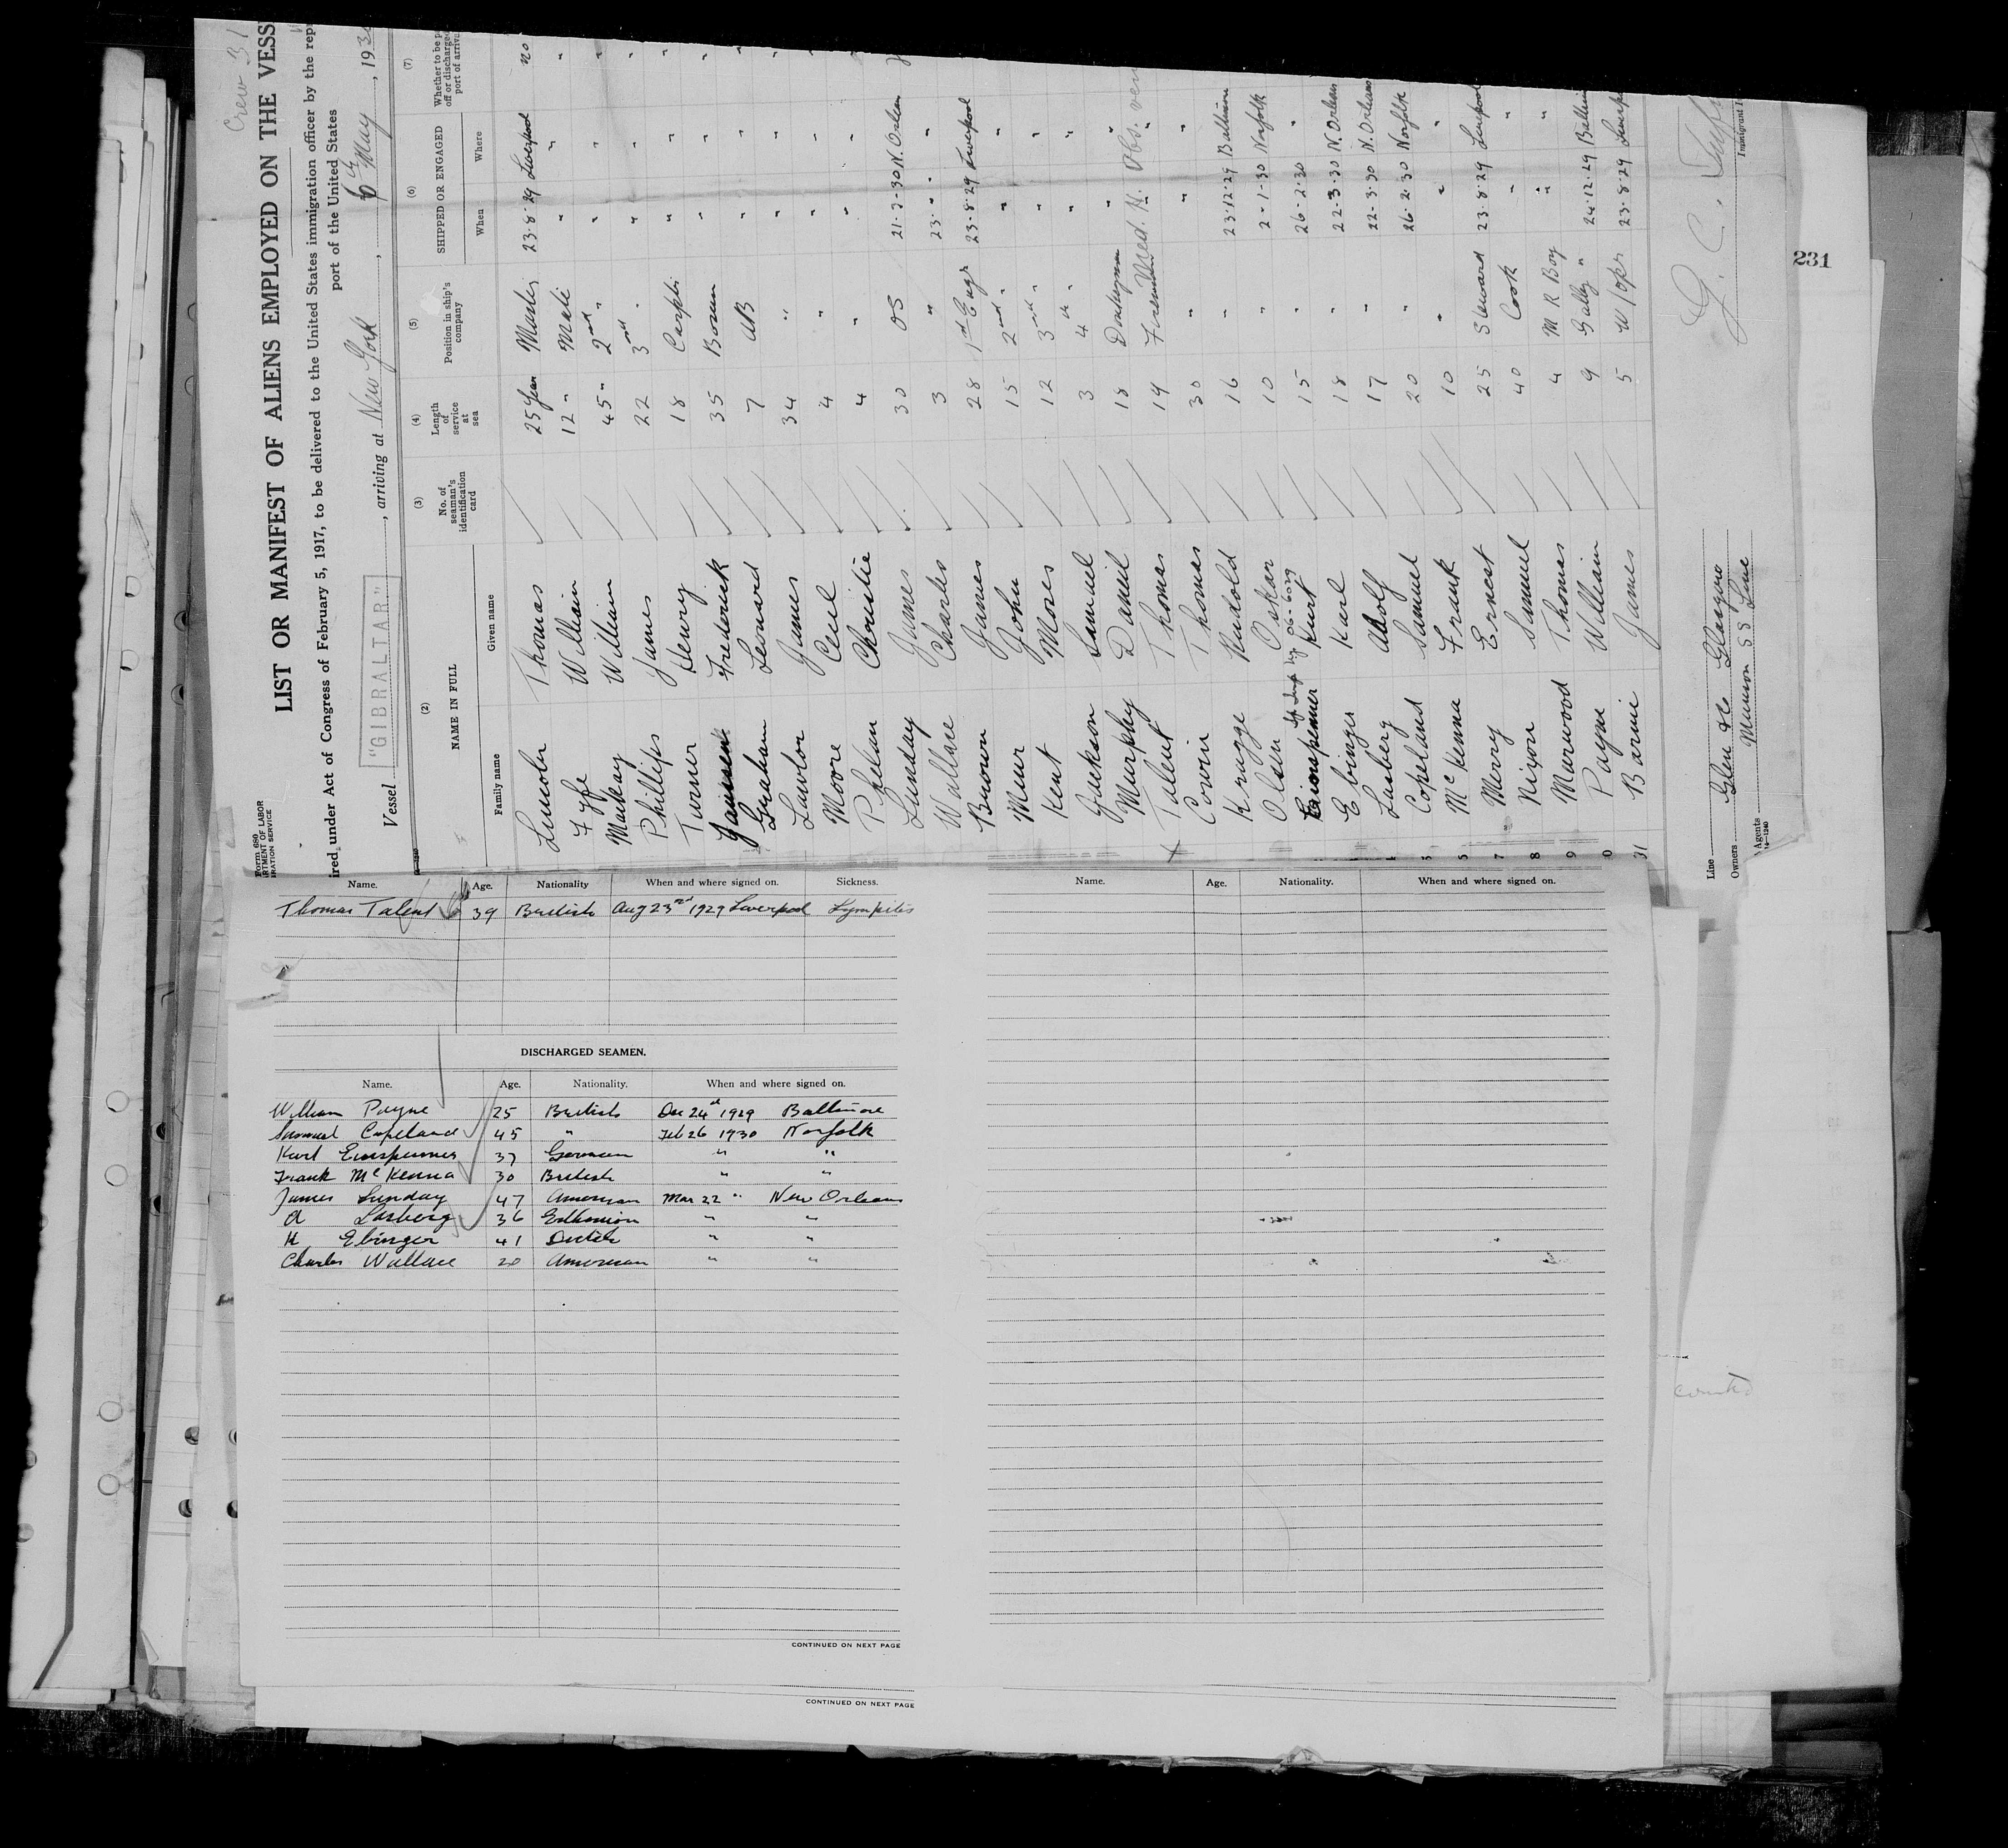 Crew 31
Form 680
LIST OR MANIFEST OF ALIENS EMPLOYED ON THE VESS
ired under Act of Congress of February 5, 1917, to be delivered to the United States immigration officer by the repr
port of the United States
Vessel "GIBRALTAR", arriving at New York, 6th May, 193
(2) (3) (4) (5) (6) (7)
NAME IN FULL No. of seaman's identification card Length of service at sea Position in ship's company SHIPPED OR ENGAGED Whether to be p off or discharged port of arriva
Family name Given name When Where
Lincoln Thomas 25 years Master 23.8.29 Liverpool no
Fyfe William 12 " Mate " " "
Mackay William 45 " 2nd " " " "
Phillips James 22 3rd " " " "
Turner Henry 18 " " "
Frederick 35 Bosun " " "
Graham Leonard 7 AB " " "
Lawlor James 34 " " " "
Moore Cecil 4 " " " "
Phelan Christie 4 " " " "
Lunday James 30 OS 21-3-30 N. Orlean
Wallace Charles 3 " 23 " " "
Brown James 28 1st Engr 23.8.29 Liverpool
Muir John 15 2nd " " "
Kent Moses 12 3rd " " "
Jackson Samuel 3 4th " " "
Murphy Daniel 18 Donkeyman " "
X Talent Thomas 14 Fireman Med. H. Obs. ven
Corrin Thomas 30 " " "
Kragge Rudold 16 " 23.12.29 Baltimore
Olsen Oskar 10 " 2-1-30 Norfolk
Einspenner Kurt 15 " 26-2-30 "
Ebinger Karl 18 " 22-3-30 N. Orleans
Lasberg Adolf 17 " 22-3-30 N. Orleans
Copeland Samuel 20 " 26-2-30 Norfolk
McKenna Frank 10 " " "
Merry Ernest 25 Steward 23.8.29 Liverpool
Nixon Samuel 40 Cook " "
Marwood Thomas 4 M R Boy " "
Payne William 9 Galley " 24.12.29 Baltim
31 Barnie James 5 W/opr 23.8.29 Liverp
Line
Owners Glen & Co Glasgow
Agents Munson SS Line
14-1240
Immigrant I
231
Name. Age. Nationality When and where signed on. Sickness.
Thomas Talent 39 British Aug 23rd 1929 Liverpool
DISCHARGED SEAMEN.
Name. Age. Nationality. When and where signed on.
William Payne 25 British Dec 24th 1929 Baltimore
Samuel Copeland 45 " Feb 26 1930 Norfolk
Kurt Einspenner 37 German " "
Frank McKenna 30 British " "
James Lunday 47 American Mar 22 " New Orleans
A Lasberg 36 Esthonion " "
K Ebinger 41 Dutch " "
Charles Wallace 20 American " "
CONTINUED ON NEXT PAGE
CONTINUED ON NEXT PAGE
Name. Age. Nationality. When and where signed on.